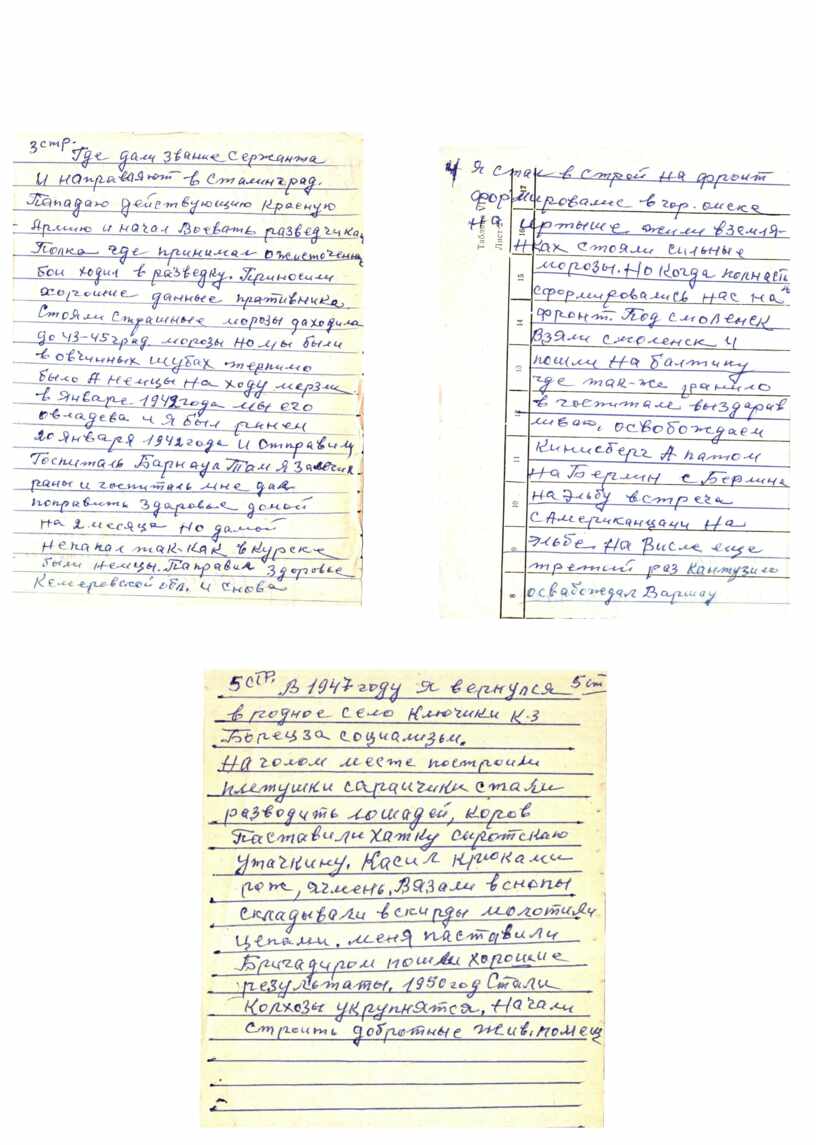 3 стр.
Где дали звание Сержанта
и направляют в Сталинград.
Пападаю действующию Красную
Армию и начал Воевать разведчиком
Полка где принимал ожисточенные
бои ходил в разведку. Приносили
хорошие данные пративника.
Стояли Страшные морозы даходила
до 43-45град морозы но мы были
в овчинных шубах терпимо
было А немцы на ходу мерзли
в Январе 1942года мы его
овладева и Я был ранен
20 января 1942года и Отправили
Госпиталь Барнаул Там я Залечил
раны и госпиталь мне дал
поправить здоровье домой
на 2 месяца но дамой
непапал так-как в Курске
были немцы. Паправил Здоровье
Кемеревской обл. и снова
4 Я стал в строй на фронт
формировались в гор. омске
на Иртыше жили в земля-
нках стояли сильные
морозы. Но когда полнасти
сформировались нас на
фронт. Под смоленск
Взяли смоленск и
пошли на балтику
где так-же ранило
в госпитале выздарав
ливаю, освобождаем
Кинисберг А патом
на Берлин с Берлина
на Эльбу встреча
с Американцами на
Эльбе. На Висле еще
третий раз кантузило
освабождал Варшау
Таблиц
Лист
17
16
15
14
13
12
11
10
9
8
5 стр. В 1947 году Я вернулся 5 ст
в родное село Ключики к-з
Борец за социализм.
На голом месте построили
плетушки сарайчики стали
разводить лошадей, коров
Паставили хатку сиротскаю
Утачкину. Касил крюками
рож, ячмень. Вязали в снопы
складывали в скирды молотили
цепами. меня паставили
Бригадиром пошли хорошие
результаты. 1950 год Стали
Колхозы укрупнятся. Начали
строить добротные жив. помещ